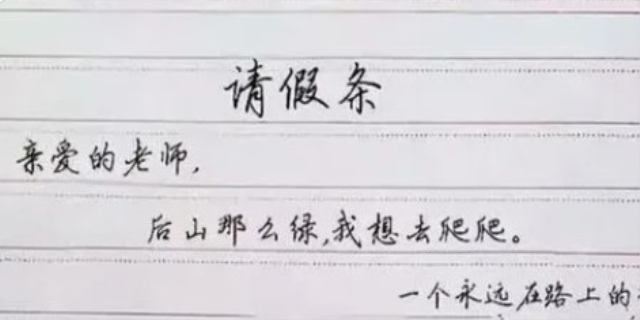 请假条
亲爱的老师,
后山那么绿,我想去爬爬。
一个永远在路上的